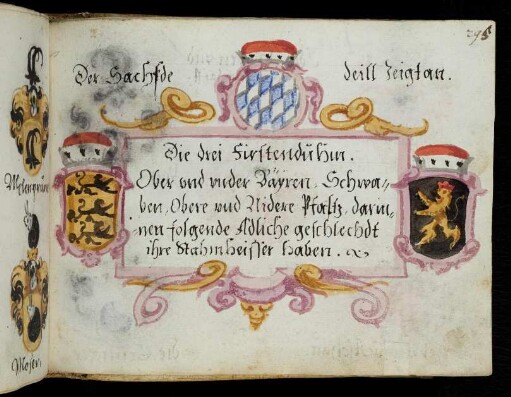 295
Der Sachste deill Zeigtan.
Die drei Firstenduhm.
Ober vnd vnder Bäyren, Schwa-
ben, Obere vnd Nidere Pfaltz, darin-
nen folgende Adliche geschlechdt
ihre Stahmheisser haben.
Moser.